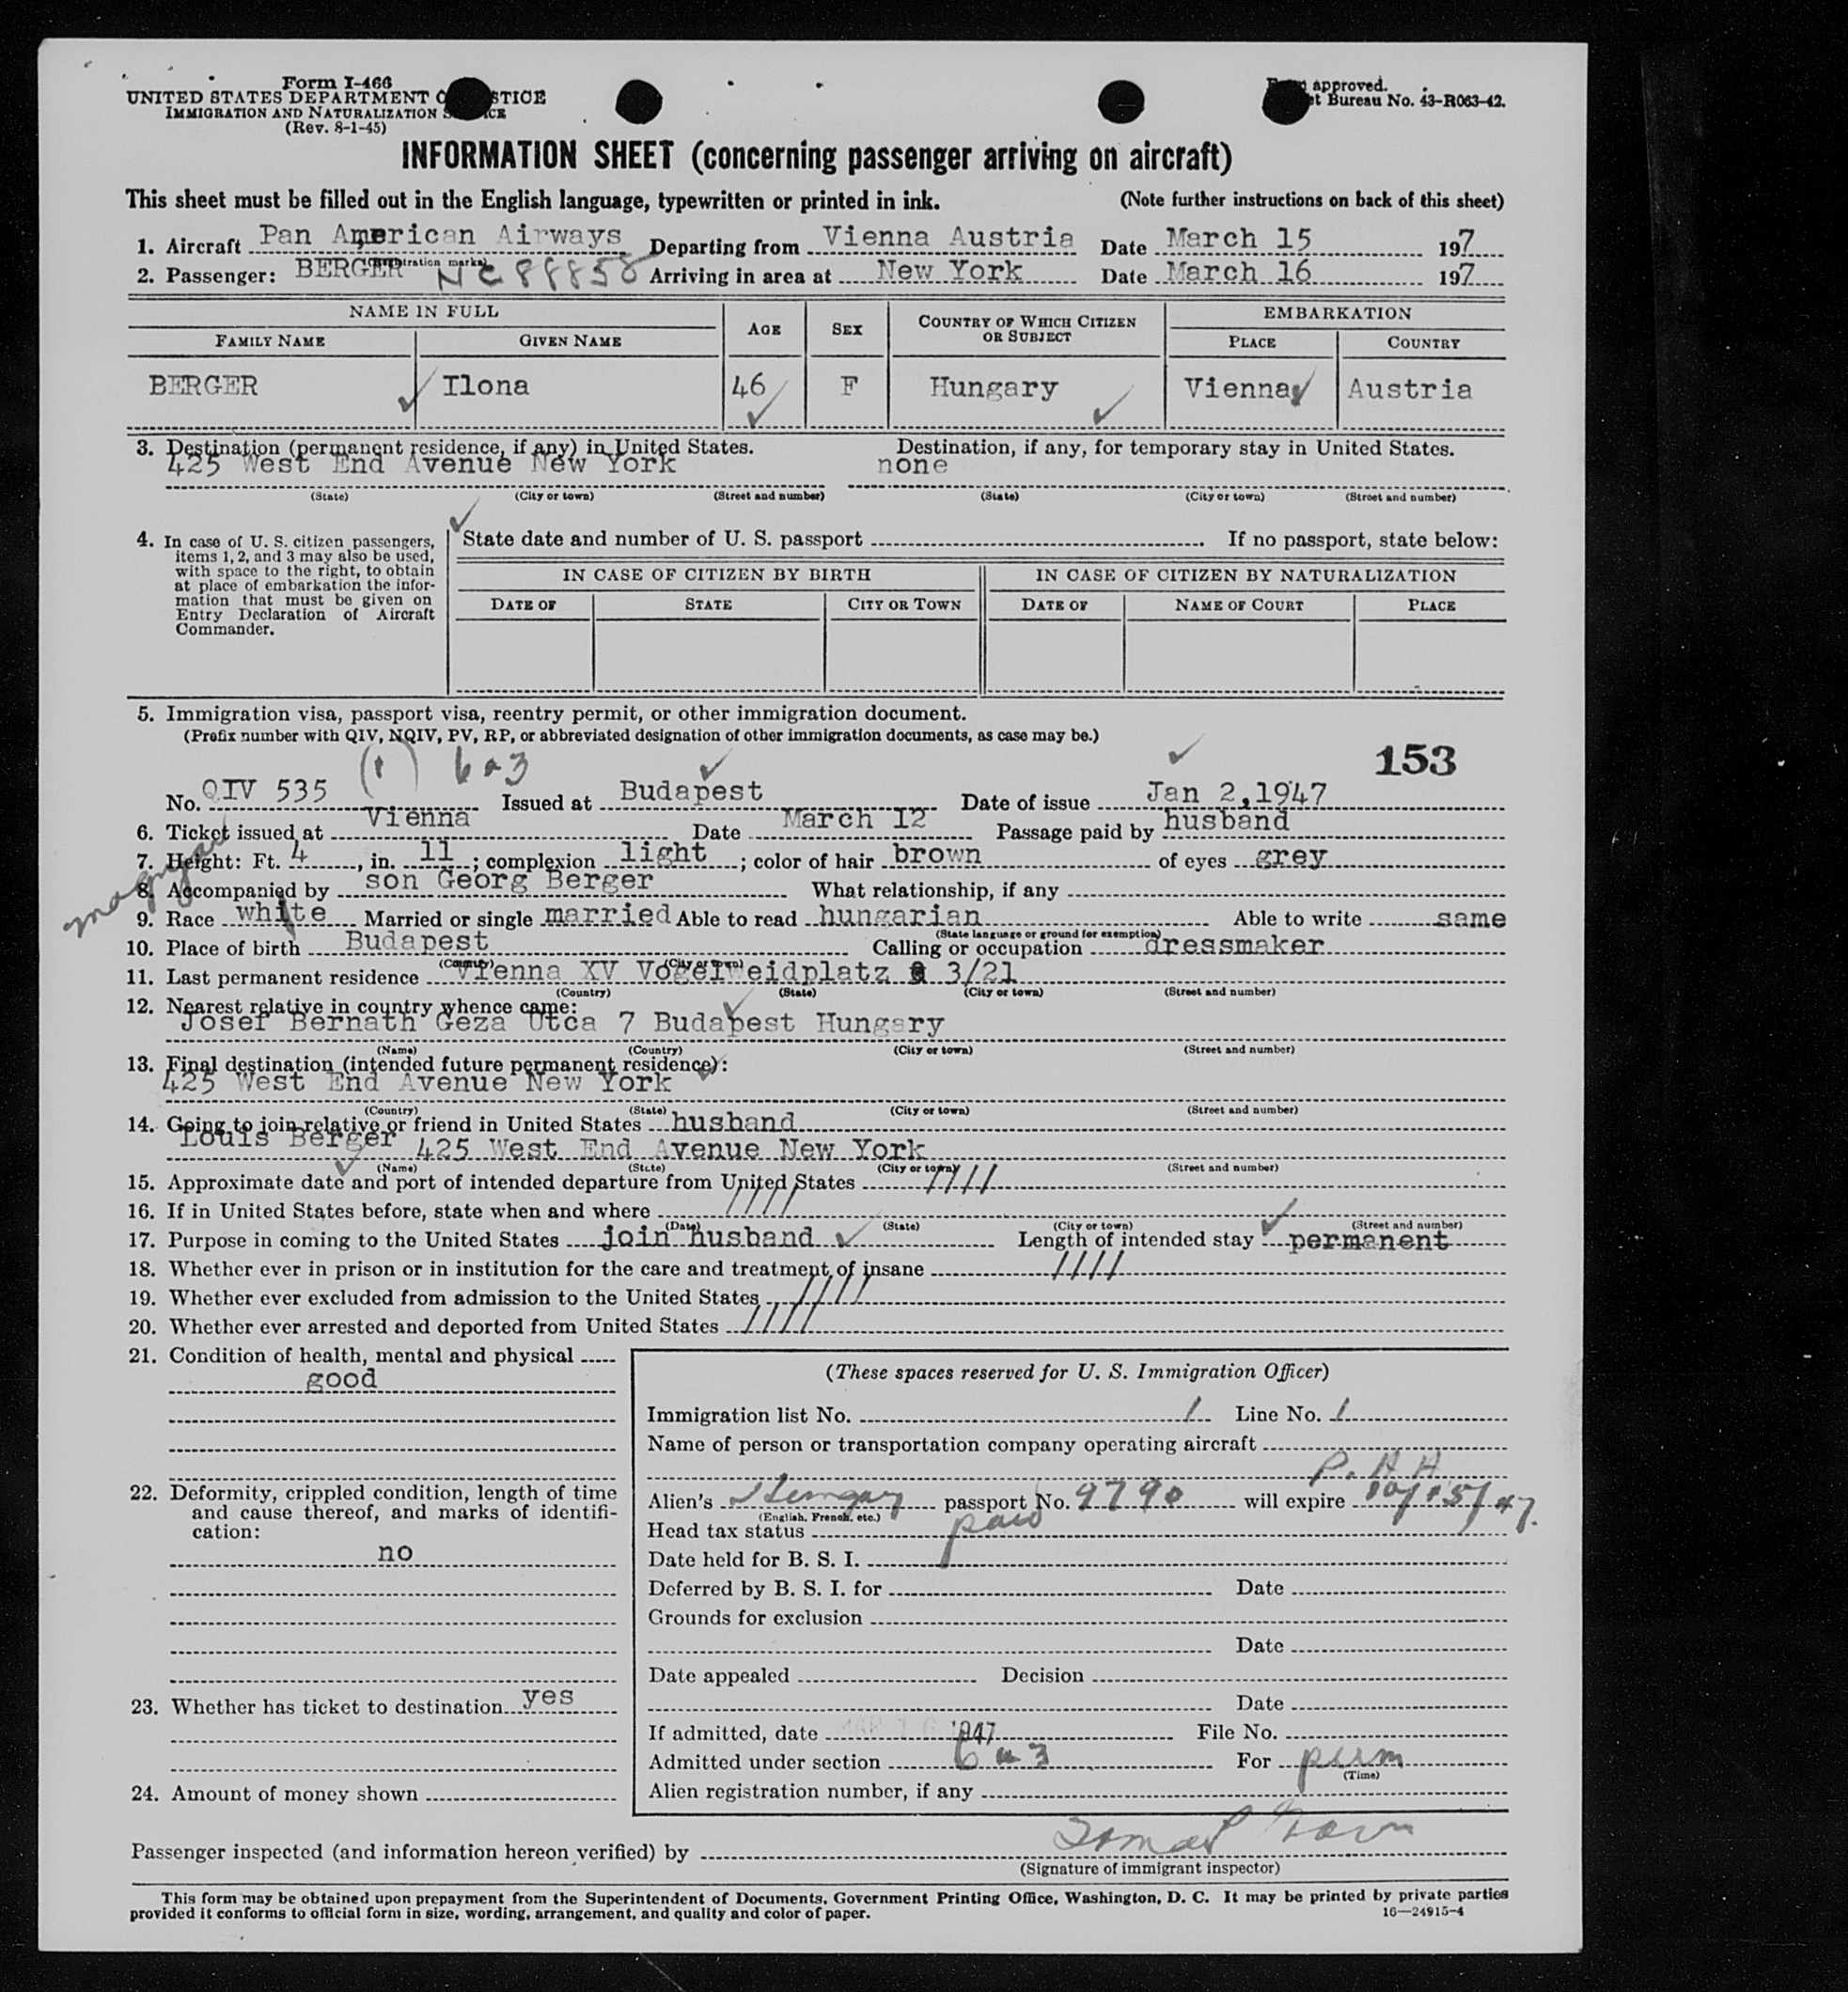 Form I-466
UNITED STATES DEPARTMENT O STICE
IMMIGRATION AND NATURALIZATION S ICE
(Rev. 8-1-45)
approved.
t Bureau No. 43-R063-42.
INFORMATION SHEET (concerning passenger arriving on aircraft)
This sheet must be filled out in the English language, typewritten or printed in ink. (Note further instructions on back of this sheet)
1. Aircraft Pan American Airways Departing from Vienna Austria Date March 15 197
(Registration marks)
2. Passenger: BERGER NC 88858 Arriving in area at New York Date March 16 197
NAME IN FULL AGE SEX COUNTRY OF WHICH CITIZEN OR SUBJECT EMBARKATION
FAMILY NAME GIVEN NAME PLACE COUNTRY
BERGER Ilona 46 F Hungary Vienna Austria
3. Destination (permanent residence, if any) in United States. Destination, if any, for temporary stay in United States.
425 West End Avenue New York none
(State) (City or town) (Street and number) (State) (City or town) (Street and number)
4. In case of U. S. citizen passengers,
items 1, 2, and 3 may also be used,
with space to the right, to obtain
at place of embarkation the infor-
mation that must be given on
Entry Declaration of Aircraft
Commander.
State date and number of U. S. passport . If no passport, state below:
IN CASE OF CITIZEN BY BIRTH IN CASE OF CITIZEN BY NATURALIZATION
DATE OF STATE CITY OR TOWN DATE OF NAME OF COURT PLACE
5. Immigration visa, passport visa, reentry permit, or other immigration document.
(Prefix number with QIV, NQIV, PV, RP, or abbreviated designation of other immigration documents, as case may be.)
(1) 6 a 3 153
No. QIV 535 Issued at Budapest Date of issue Jan 2, 1947
6. Ticket issued at Vienna Date March 12 Passage paid by husband
7. Height: Ft. 4, in. 11; complexion light; color of hair brown of eyes grey
magyar
8. Accompanied by son Georg Berger What relationship, if any
9. Race white Married or single married Able to read hungarian Able to write same
(State language or ground for exemption)
10. Place of birth Budapest Calling or occupation dressmaker
(Country) (City or town)
11. Last permanent residence Vienna XV Vogelweidplatz 3/21
(Country) (State) (City or town) (Street and number)
12. Nearest relative in country whence came:
Josef Bernath Geza Utca 7 Budapest Hungary
(Name) (Country) (City or town) (Street and number)
13. Final destination (intended future permanent residence):
425 West End Avenue New York
(Country) (State) (City or town) (Street and number)
14. Going to join relative or friend in United States husband
Louis Berger 425 West End Avenue New York
(Name) (State) (City or town) (Street and number)
15. Approximate date and port of intended departure from United States ////
16. If in United States before, state when and where ////
(Date) (State) (City or town) (Street and number)
17. Purpose in coming to the United States join husband Length of intended stay permanent
18. Whether ever in prison or in institution for the care and treatment of insane ////
19. Whether ever excluded from admission to the United States ////
20. Whether ever arrested and deported from United States ////
21. Condition of health, mental and physical
good
22. Deformity, crippled condition, length of time
and cause thereof, and marks of identifi-
cation:
no
23. Whether has ticket to destination yes
24. Amount of money shown
(These spaces reserved for U. S. Immigration Officer)
Immigration list No. 1 Line No. 1
Name of person or transportation company operating aircraft
P. A A
Alien's Hungary passport No. 9790 will expire 10/15/47.
(English, French, etc.)
Head tax status paid
Date held for B. S. I.
Deferred by B. S. I. for Date
Grounds for exclusion
Date
Date appealed Decision
Date
If admitted, date MAR 16 1947 File No.
Admitted under section 6 a 3 For perm
(Time)
Alien registration number, if any
Passenger inspected (and information hereon verified) by
(Signature of immigrant inspector)
This form may be obtained upon prepayment from the Superintendent of Documents, Government Printing Office, Washington, D. C. It may be printed by private parties
provided it conforms to official form in size, wording, arrangement, and quality and color of paper. 16—24915-4